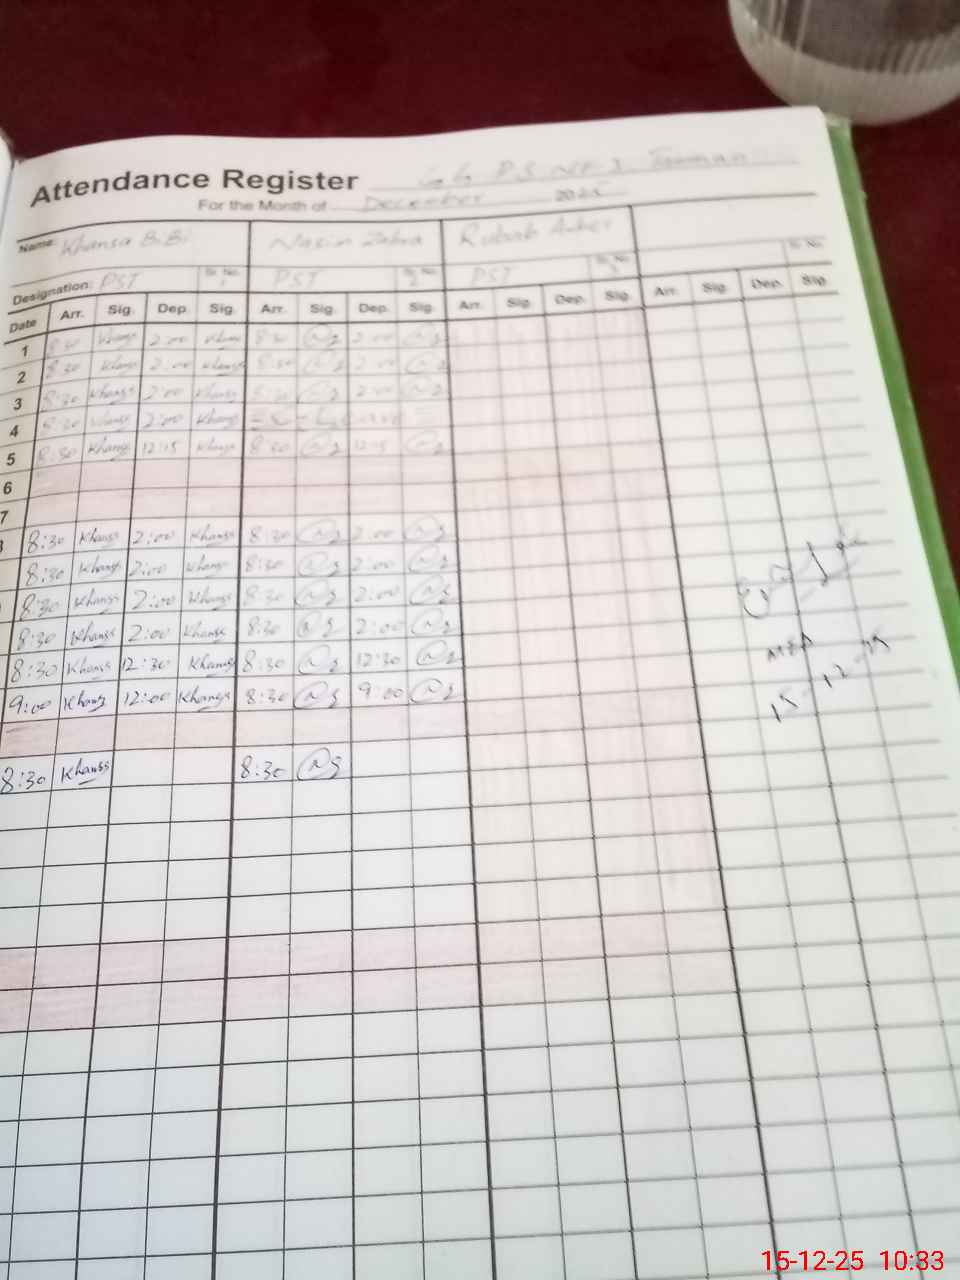 Attendance Register
For the Month of December 2025
Name: Khansa BiBi Nasim Zahra Rubab
Designation: PST Sr. No. 1 PST Sr. No. 2 PST Sr. No. 3 Sr. No.
Date Arr. Sig. Dep. Sig. Arr. Sig. Dep. Sig. Arr. Sig. Dep. Sig. Arr. Sig. Dep. Sig.
1 8:30 Khansa 2:00 Khansa 8:30 2:00
2 8:30 Khansa 2:00 Khansa 8:30 2:00
3 8:30 Khansa 2:00 Khansa 8:30 2:00
4 8:30 Khansa 2:00 Khansa Leave
5 8:30 Khansa 12:15 Khansa 8:30 12:15
6
7
8:30 Khansa 2:00 Khansa 8:30 2:00
8:30 Khansa 2:00 Khansa 8:30 2:00
8:30 Khansa 2:00 Khansa 8:30 2:00
8:30 Khansa 2:00 Khansa 8:30 2:00
8:30 Khansa 12:30 Khansa 8:30 12:30
9:00 Khansa 12:00 Khansa 8:30 9:00
15-12-25
8:30 Khansa 8:30
15-12-25 10:33